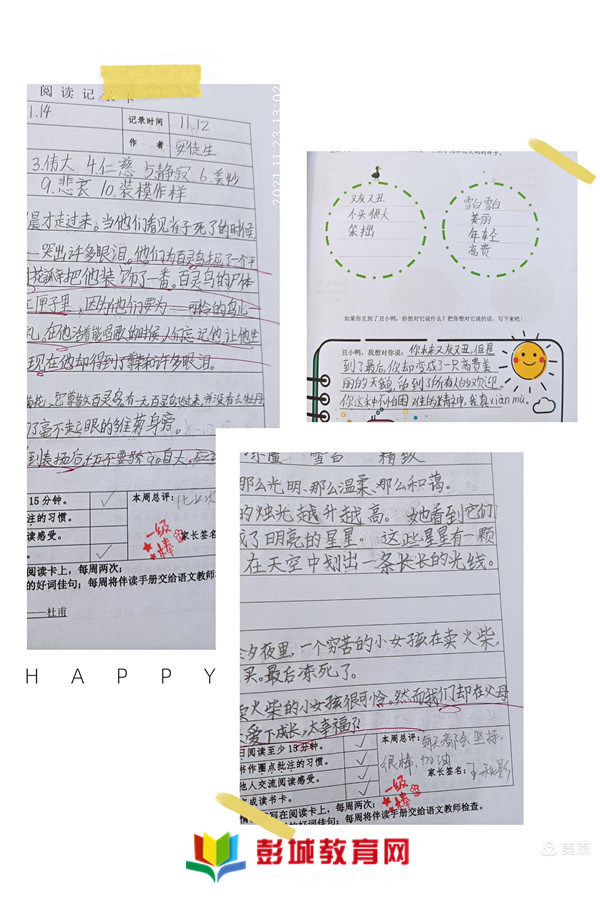 阅读记录卡
2021.11.23 13:02
1.14
记录时间
11.12
作者
安徒生
3.伟大 4.仁慈 5静寂 6.美妙
9.悲哀 10.装模作样
晨才走过来。当他们看见雀子死了的时候
哭出许多眼泪。他们为百灵鸟掘了一个
把他装饰了一番。百灵鸟的尸体
匣子里,因为他们要为一可怜的鸟儿
礼,在他活着能唱歌的时候,人们忘记他,让他坐
现在他却得到了许多眼泪。
了毫不起眼的雏菊身旁。
15分钟。
本周总评:
批注的习惯。
读感受。
一级棒
家长签名:
阅读卡上,每周两次;
的好词佳句;每周将伴读手册交给语文教师
——杜甫
又灰又丑
个头很大
笨拙
雪白雪白
美丽
年轻
高贵
如果你见到了丑小鸭,你想对它说什么?把你想对它说的话,写下来吧!
丑小鸭,我想对你说:你本来又灰又丑,但是
到了最后,你却变成了一只高贵美
丽的天鹅,得到了所有人的欢迎。
你这种不怕困难的精神,我真xiàn mù。
雪白 精致
那么光明、那么温柔、那么和蔼。
的烛光越升越高。她看到它们
成了明亮的星星。这些星星有一颗
在天空中划出一条长长的光线。
夕夜里,一个穷苦的小女孩在卖火柴,
买。最后冻死了。
卖火柴的小女孩很可怜。然而我们却在父母
爱下成长,太幸福了!
日阅读至少15分钟。
本周总评:每天都会坚持,
书作圈点批注的习惯。
很棒,加油
他人交流阅读感受。
家长签名:
成读书卡。
一级棒
写在阅读卡上,每周两次;
的好词佳句;每周将伴读手册交给语文教师检查。
HAPPY
彭城教育网
美篇